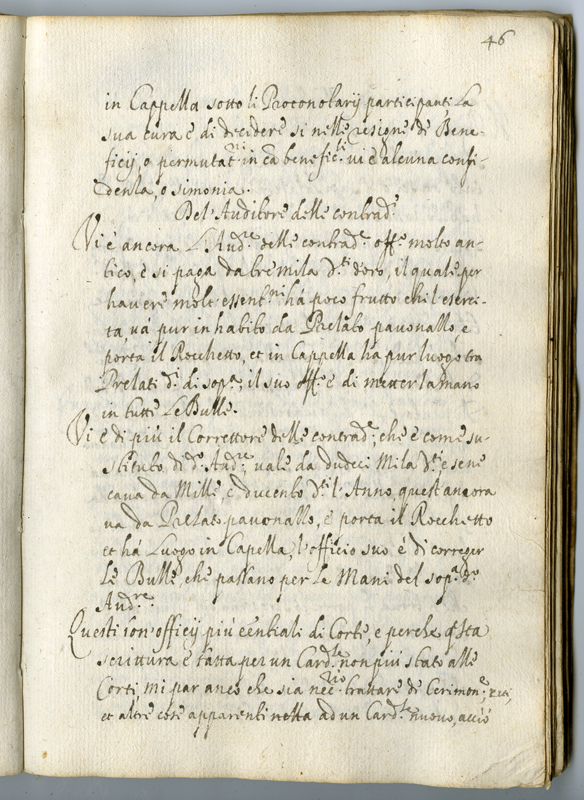 46
in Cappella sotto li Protonotarij participanti. La
sua cura è di decidere si nelle resigne de Bene-
ficij, o permutat.ni in ca benefic.li vi è alcuna confi-
denza, o simonia.
Del Auditore delle contrad.e
Vi è ancora L'Aud.re delle contrad.e off.o molto an-
tico, e si paga da tre mila d.ti d'oro, il quale per
havere molt' essent.ni há poco frutto chi l'eserci-
ta, va pur in habito da Prelato pauonallo, e
porta il Rocchetto, et in Cappella há pur luogo tra
Prelati d.i di sop.a, il suo off.o è di metter la mano
in tutte Le Bulle.
Vi è di piú il Correttore delle contrad.e, che è come su-
stituto di d.o Aud.re, vale da dudeci Mila d.ti e se ne
caua da Mille, e ducento d.ti l'Anno, quest ancora
va da Prelato pauonallo, e porta il Rocchetto
et há Luogo in Capella, l'officio suo é di correger
Le Bulle che passano per le Mani del sop.a d.o
Aud.re.
Questi son' officij piú eentiali di Corte, e perche q.sta
scrittura è fatta per un Card.le non piú stato alle
Corti, mi par anco che sia nec.rio trattare de Cerimon.e,
et altre cose apparenti netta ad un Card.le nuouo, acció